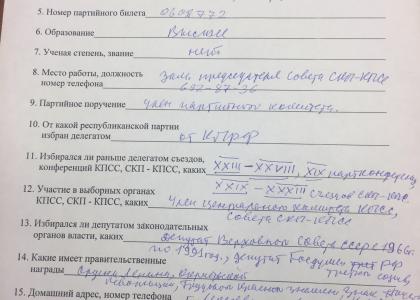 5. Номер партийного билета 0608772
6. Образование Высшее
7. Ученая степень, звание нет
8. Место работы, должность Зам. председателя Совета СКП-КПСС
номер телефона 692-87-36
9. Партийное поручение член партийного комитета.
10. От какой республиканской партии
избран делегатом от КПРФ
11. Избирался ли раньше делегатом съездов,
конференций КПСС, СКП - КПСС, каких XXIII – XXVIII, XIX партконференц
XXIX – XXXIII съездов СКП-КПСС
12. Участие в выборных органах
КПСС, СКП - КПСС, каких член Центрального комитета КПСС,
Совета СКП-КПСС
13. Избирался ли депутатом законодательных
органов власти, каких депутат Верховного Совета СССР с 1966г.
по 1991год, депутат Госдумы РФ
третьего созыв
14. Какие имеет правительственные
награды Ордена Ленина, Октябрьской
революции, Трудового Красного знамени, Знак
15. Домашний адрес, номер телефона